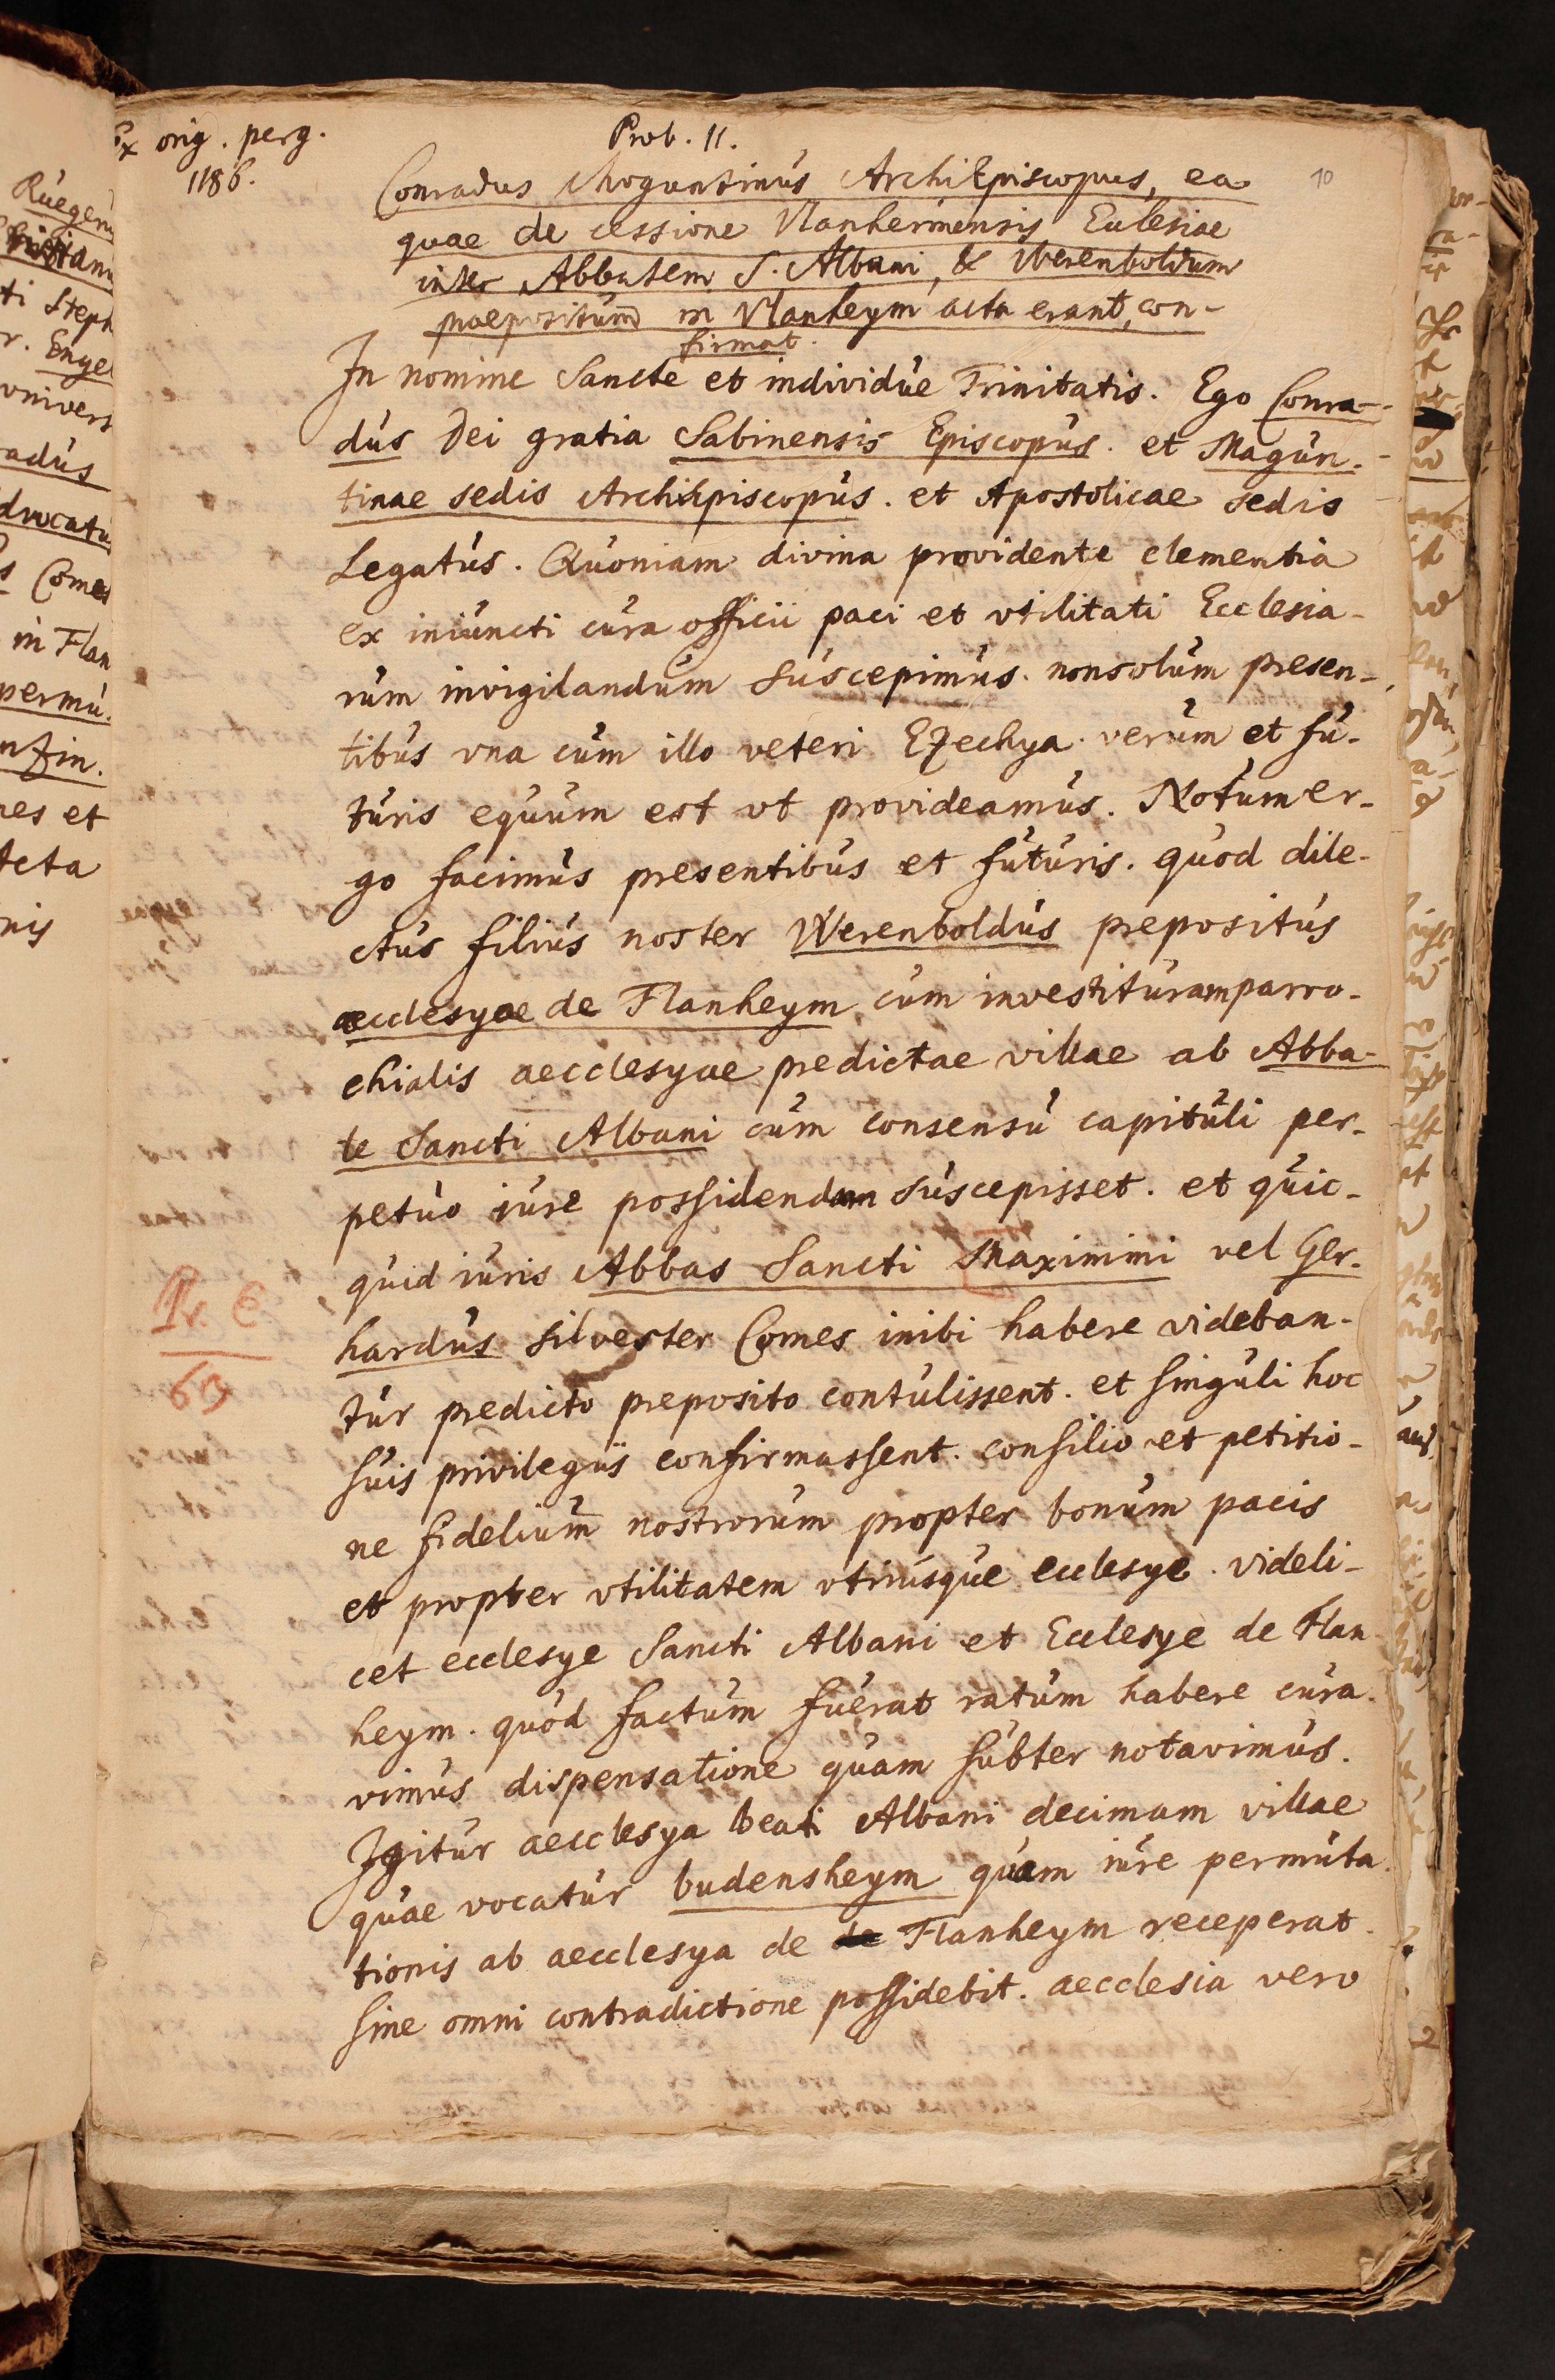 Ex orig. perg.
1186.
Prob. 11.
10
Conradus Moguntinus ArchiEpiscopus, ea
quae de cessione Vlanhermensis Eclesiae
inter Abbatem S. Albani, & Werenboldum
praepositum in Vlanheym acta erant, con-
firmat.
In nomine Sancte et individue Trinitatis. Ego Conra-
dus Dei gratia Sabinensis Episcopus. et Magun-
tinae sedis ArchiEpiscopus. et Apostolicae sedis
Legatus. Quoniam divina providente clementia
ex iniuncti cura officii paci et vtilitati Ecclesia-
rum invigilandum suscepimus. non solum presen-
tibus vna cum illo veteri Ezechya. verum et fu-
turis equum est vt provideamus. Notum er-
go facimus presentibus et futuris. quod dile-
ctus filius noster Werenboldus prepositus
aecclesyae de Flanheym cum investituram parro-
chialis aecclesyae predictae villae ab Abba-
te Sancti Albani cum consensu capituli per-
petuo iure possidendam suscepisset. et quic-
quid iuris Abbas Sancti Maximini vel Ger-
hardus silvester Comes inibi habere videban-
tur predicto preposito contulissent. et singuli hoc
suis privilegiis confirmassent. consilio et petitio-
ne fidelium nostrorum propter bonum pacis
et propter vtilitatem vtriusque ecclesye. videli-
cet ecclesye Sancti Albani et Ecclesye de Flan
heym. quod factum fuerat ratum habere cura-
vimus dispensatione quam subter notavimus.
Igitur aecclesya beati Albani decimam villae
quae vocatur budensheym quam iure permuta-
tionis ab aecclesya de Flanheym receperat.
sine omni contradictione possidebit. aecclesia vero
Pr. C
69